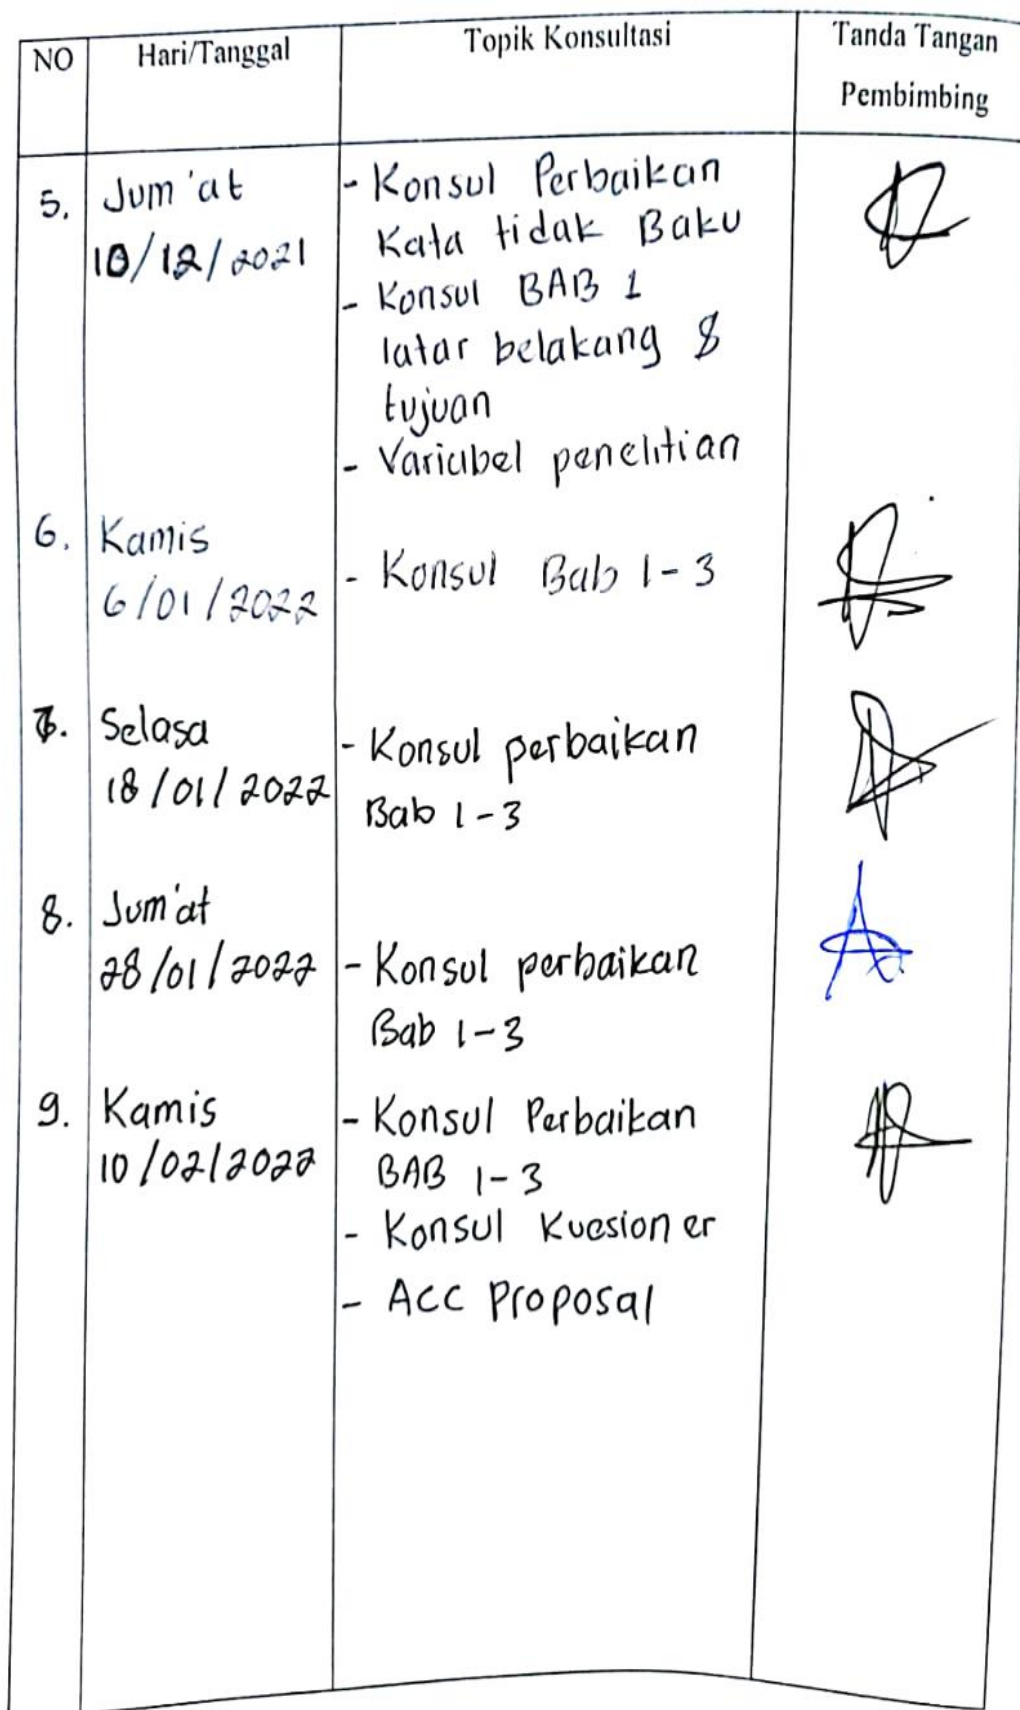 NO Hari/Tanggal Topik Konsultasi Tanda Tangan
Pembimbing
5. Jum'at - Konsul Perbaikan
10/12/2021 Kata tidak Baku
- Konsul BAB 1
latar belakang &
tujuan
- Variabel penelitian
6. Kamis
6/01/2022 - Konsul Bab 1-3
7. Selasa - Konsul perbaikan
18/01/2022 Bab 1-3
8. Jum'at
28/01/2022 - Konsul perbaikan
Bab 1-3
9. Kamis - Konsul Perbaikan
10/02/2022 BAB 1-3
- Konsul Kuesioner
- ACC Proposal